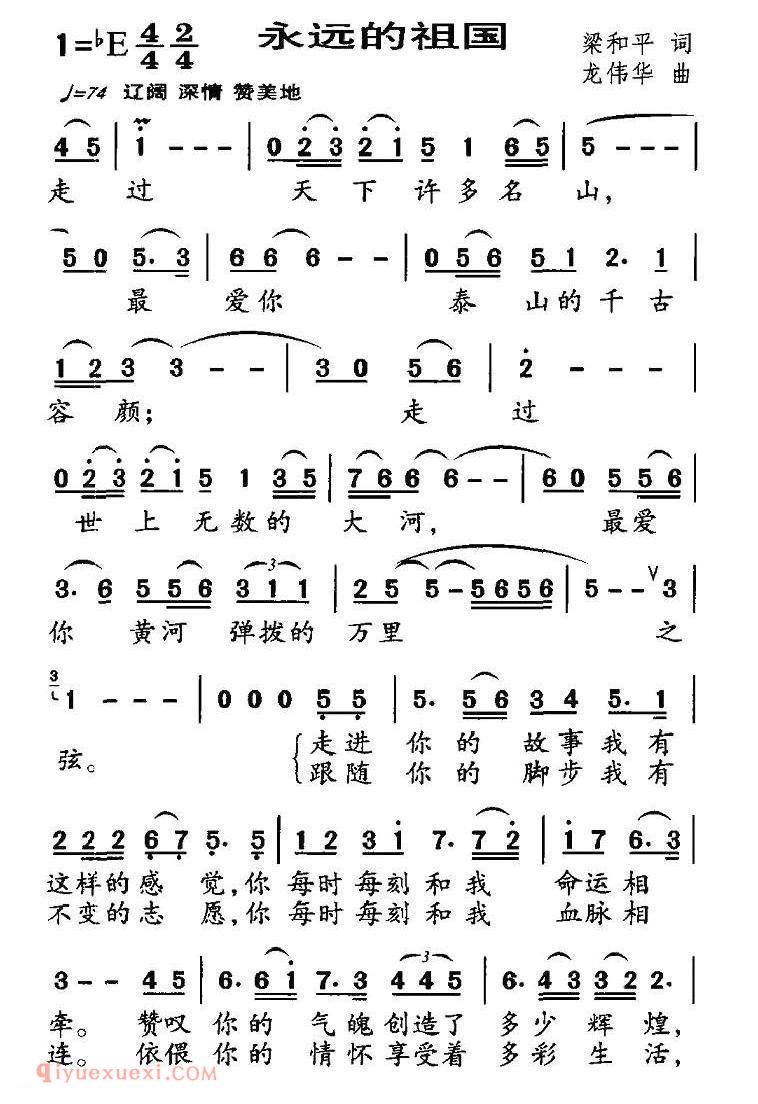 永远的祖国
1=♭E 4/4 2/4
梁和平 词
龙伟华 曲
♩=74 辽阔 深情 赞美地
4 5 | i - - - | 0 2 3 2 i 5 1 6 5 | 5 - - - |
走 过 天 下 许 多 名 山,
5 0 5. 3 | 6 6 6 - - | 0 5 6 5 1 2. 1 |
最 爱 你 泰 山 的 千 古
1 2 3 3 - - | 3 0 5 6 | 2 - - - |
容 颜; 走 过
0 2 3 2 i 5 1 3 5 | 7 6 6 6 - - | 6 0 5 5 6 |
世 上 无 数 的 大 河, 最 爱
3. 6 5 5 6 3 1 1 | 2 5 5 - 5 6 5 6 | 5 - - ∨ 3 |
你 黄 河 弹 拨 的 万 里 之
3 1 - - - | 0 0 0 5 5 | 5. 5 6 3 4 5. 1 |
弦。 走 进 你 的 故 事 我 有
跟 随 你 的 脚 步 我 有
2 2 2 6 7 5. 5 | 1 2 3 i 7. 7 2 | i 7 6. 3 |
这 样 的 感 觉, 你 每 时 每 刻 和 我 命 运 相
不 变 的 志 愿, 你 每 时 每 刻 和 我 血 脉 相
3 - - 4 5 | 6. 6 i 7. 3 4 4 5 | 6. 4 3 3 2 2. |
牵。 赞 叹 你 的 气 魄 创 造 了 多 少 辉 煌,
连。 依 偎 你 的 情 怀 享 受 着 多 彩 生 活,
qiyuexuexi.com